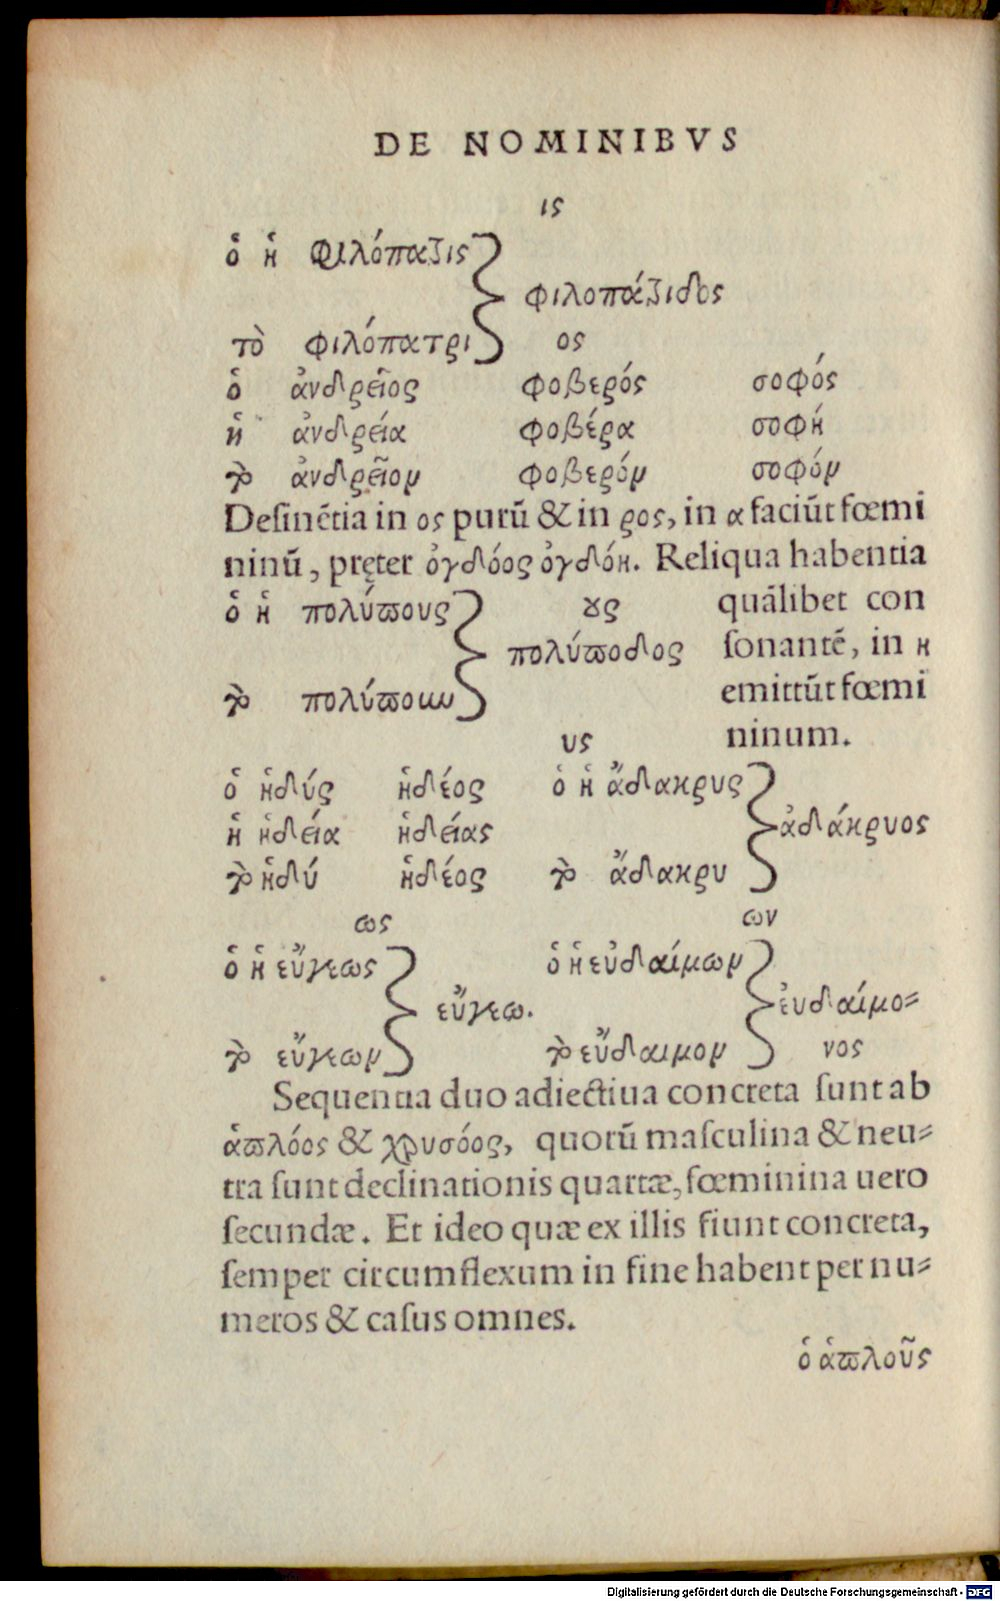 DE NOMINIBVS
ις
ὁ ἡ φιλόπατρις
φιλοπάτριδος
τὸ φιλόπατρι
ος
ὁ ἀνδρεῖος φοβερός σοφός
ἡ ἀνδρεία φοβέρα σοφή
τὸ ἀνδρεῖον φοβερόν σοφόν
Deſinẽtia in ος purũ & in ρος, in α faciũt fœmi
ninũ, pręter ὀγδόος ὀγδόη. Reliqua habentia
ὁ ἡ πολύπους ους quãlibet con
πολύποδος ſonantẽ, in η
τὸ πολύπουν emittũt fœmi
ninum.
υς
ὁ ἡδύς ἡδέος ὁ ἡ ἄδακρυς
ἡ ἡδεία ἡδείας ἀδάκρυος
τὸ ἡδύ ἡδέος τὸ ἄδακρυ
ως ων
ὁ ἡ εὔγεως ὁ ἡ εὐδαίμων
εὔγεω. ἐυδαίμο⸗
τὸ εὔγεων τὸ εὔδαιμον νος
Sequentia duo adiectiua concreta ſunt ab
ἁπλόος & χρυσόος, quorũ maſculina & neu⸗
tra ſunt declinationis quartæ, fœminina uero
ſecundæ. Et ideo quæ ex illis fiunt concreta,
ſemper circumflexum in fine habent per nu⸗
meros & caſus omnes.
ὁ ἁπλοῦς
Digitalisierung gefördert durch die Deutsche Forschungsgemeinschaft - DFG